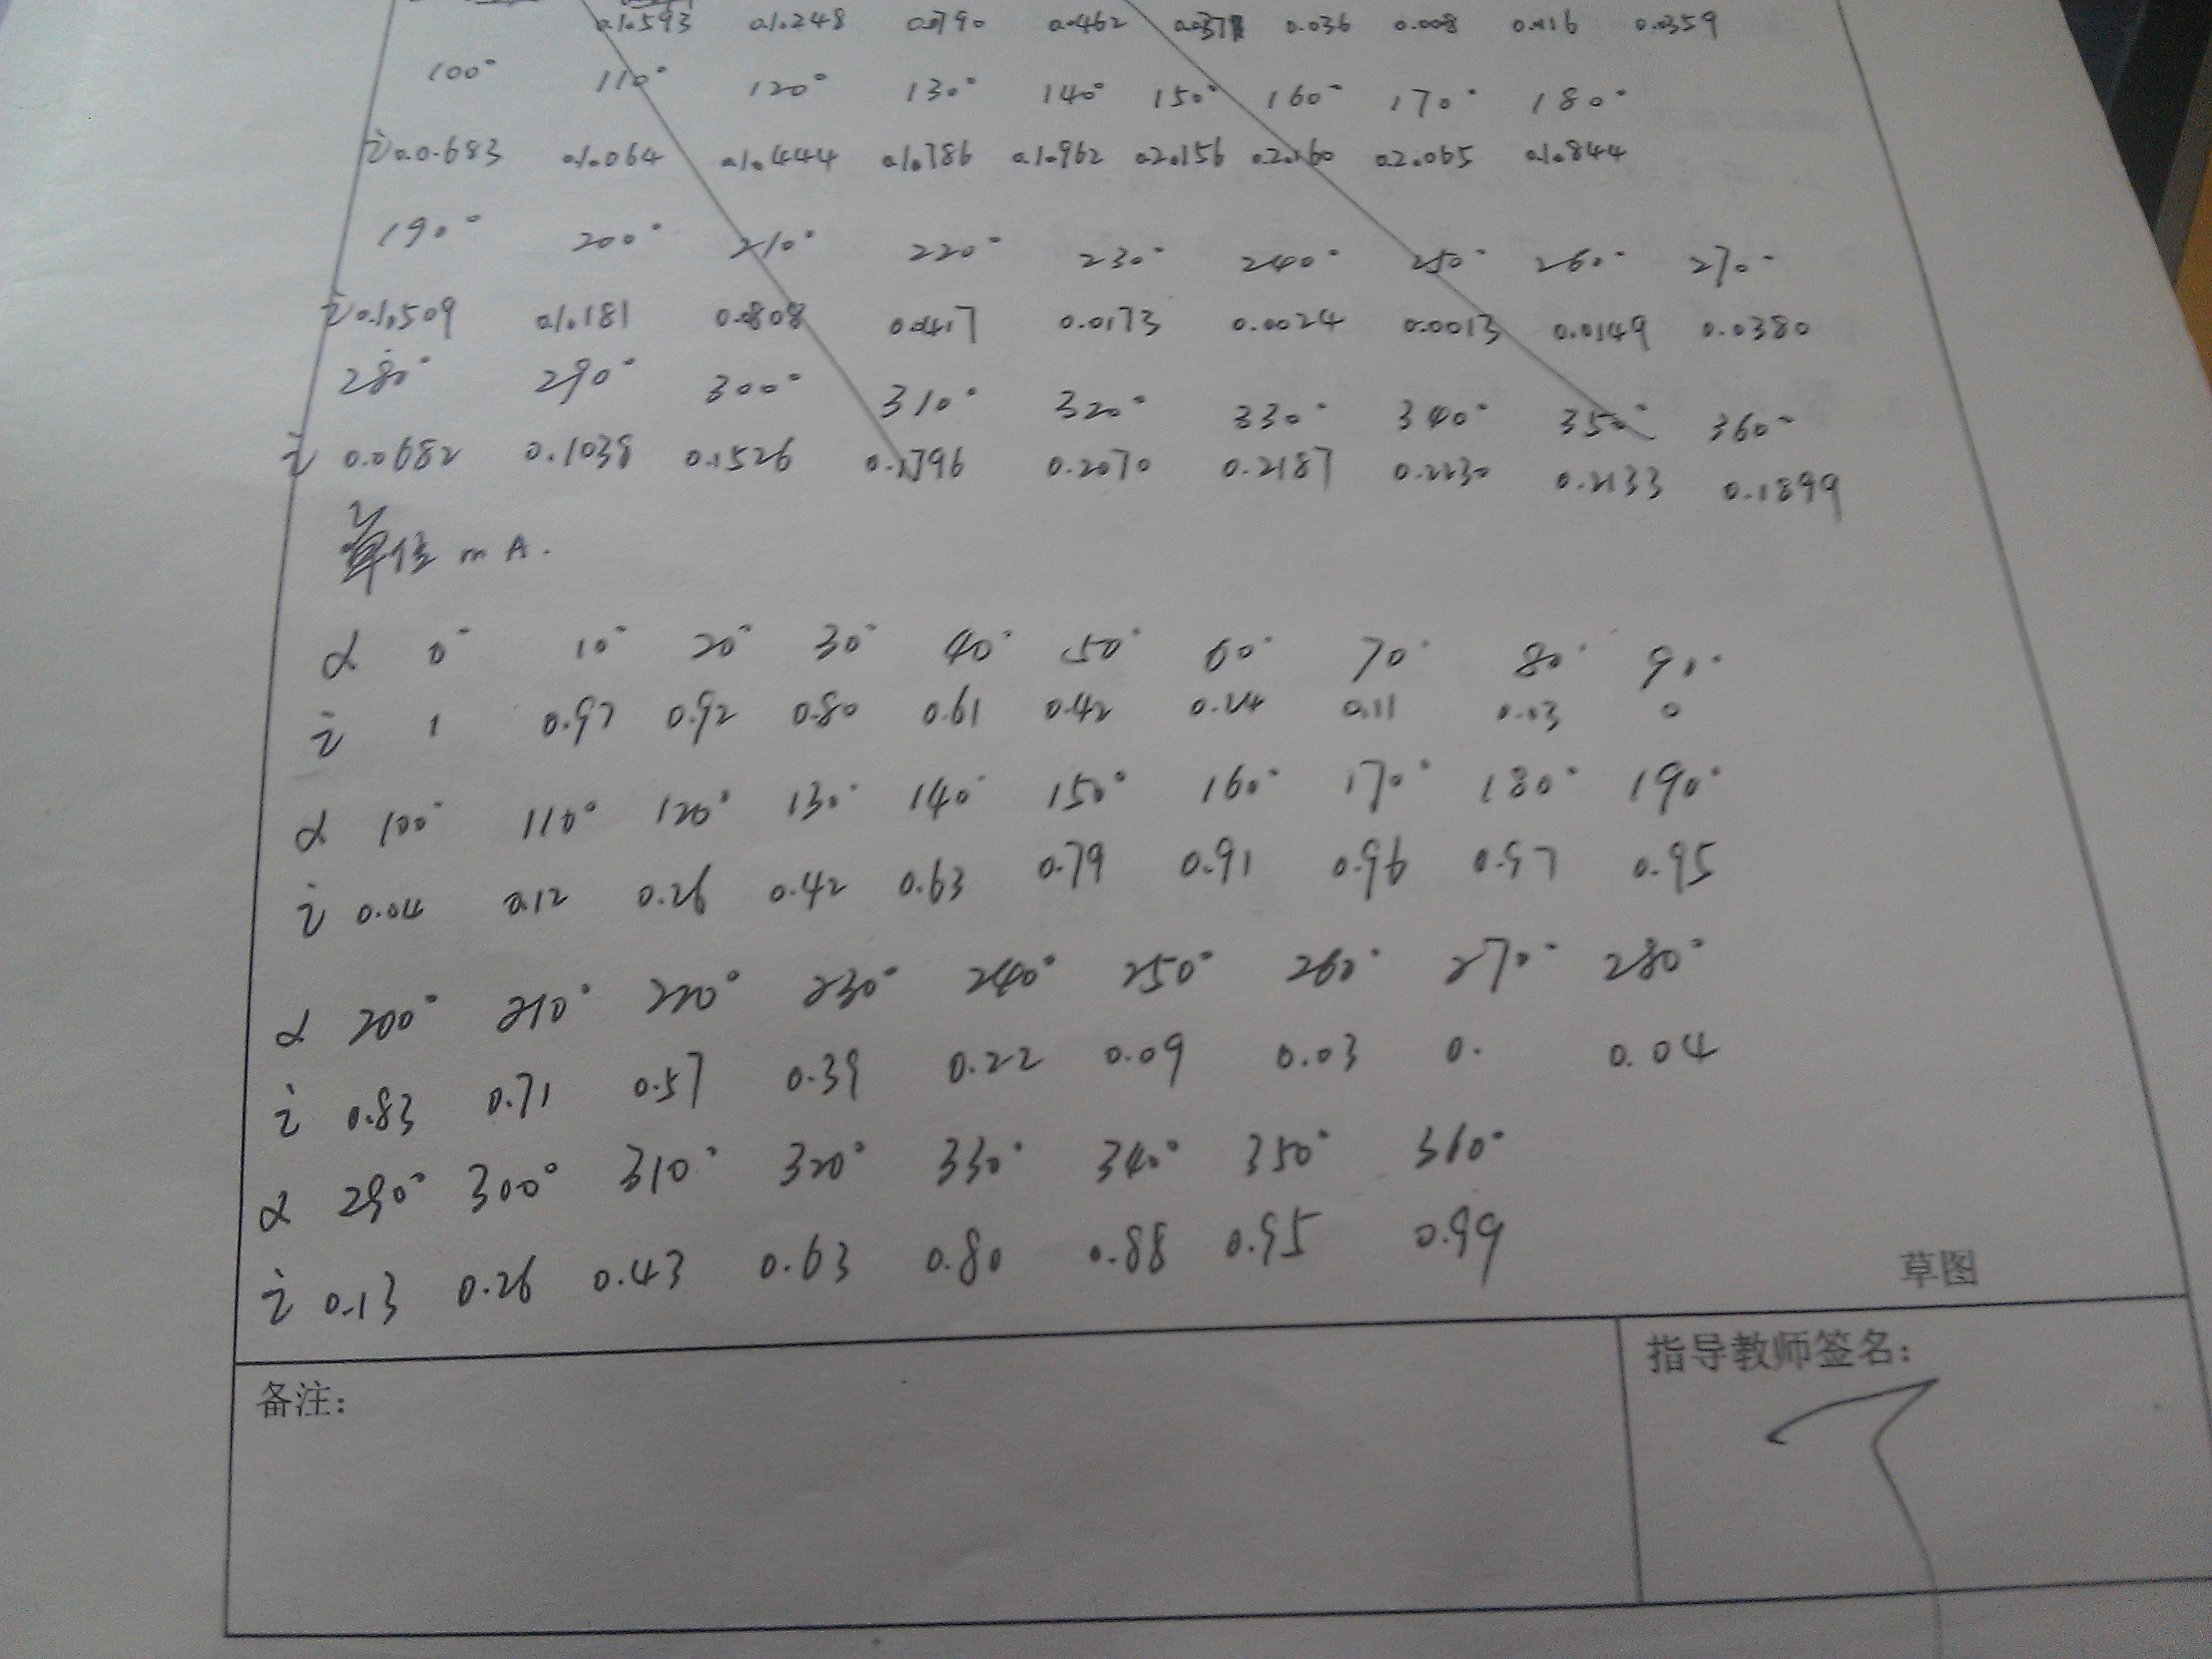 0.0790 0.0462 0.036 0.008 0.016 0.0359
100° 110° 120° 130° 140° 150° 160° 170° 180°
i 0.0683 0.1064 0.1444 0.1786 0.1962 0.2156 0.2160 0.2065 0.1844
190° 200° 210° 220° 230° 240° 250° 260° 270°
i 0.1509 0.1181 0.0808 0.0417 0.0173 0.0024 0.0013 0.0149 0.0380
280° 290° 300° 310° 320° 330° 340° 350° 360°
i 0.0682 0.1038 0.1526 0.1796 0.2070 0.2187 0.2230 0.2133 0.1899
单位 mA.
α 0° 10° 20° 30° 40° 50° 60° 70° 80° 90°
i 1 0.97 0.92 0.80 0.61 0.42 0.24 0.11 0.03 0
α 100° 110° 120° 130° 140° 150° 160° 170° 180° 190°
i 0.04 0.12 0.26 0.42 0.63 0.79 0.91 0.96 0.97 0.95
α 200° 210° 220° 230° 240° 250° 260° 270° 280°
i 0.83 0.71 0.57 0.39 0.22 0.09 0.03 0. 0.04
α 290° 300° 310° 320° 330° 340° 350° 360°
i 0.13 0.26 0.43 0.63 0.80 0.88 0.95 0.99
草图
备注：
指导教师签名：